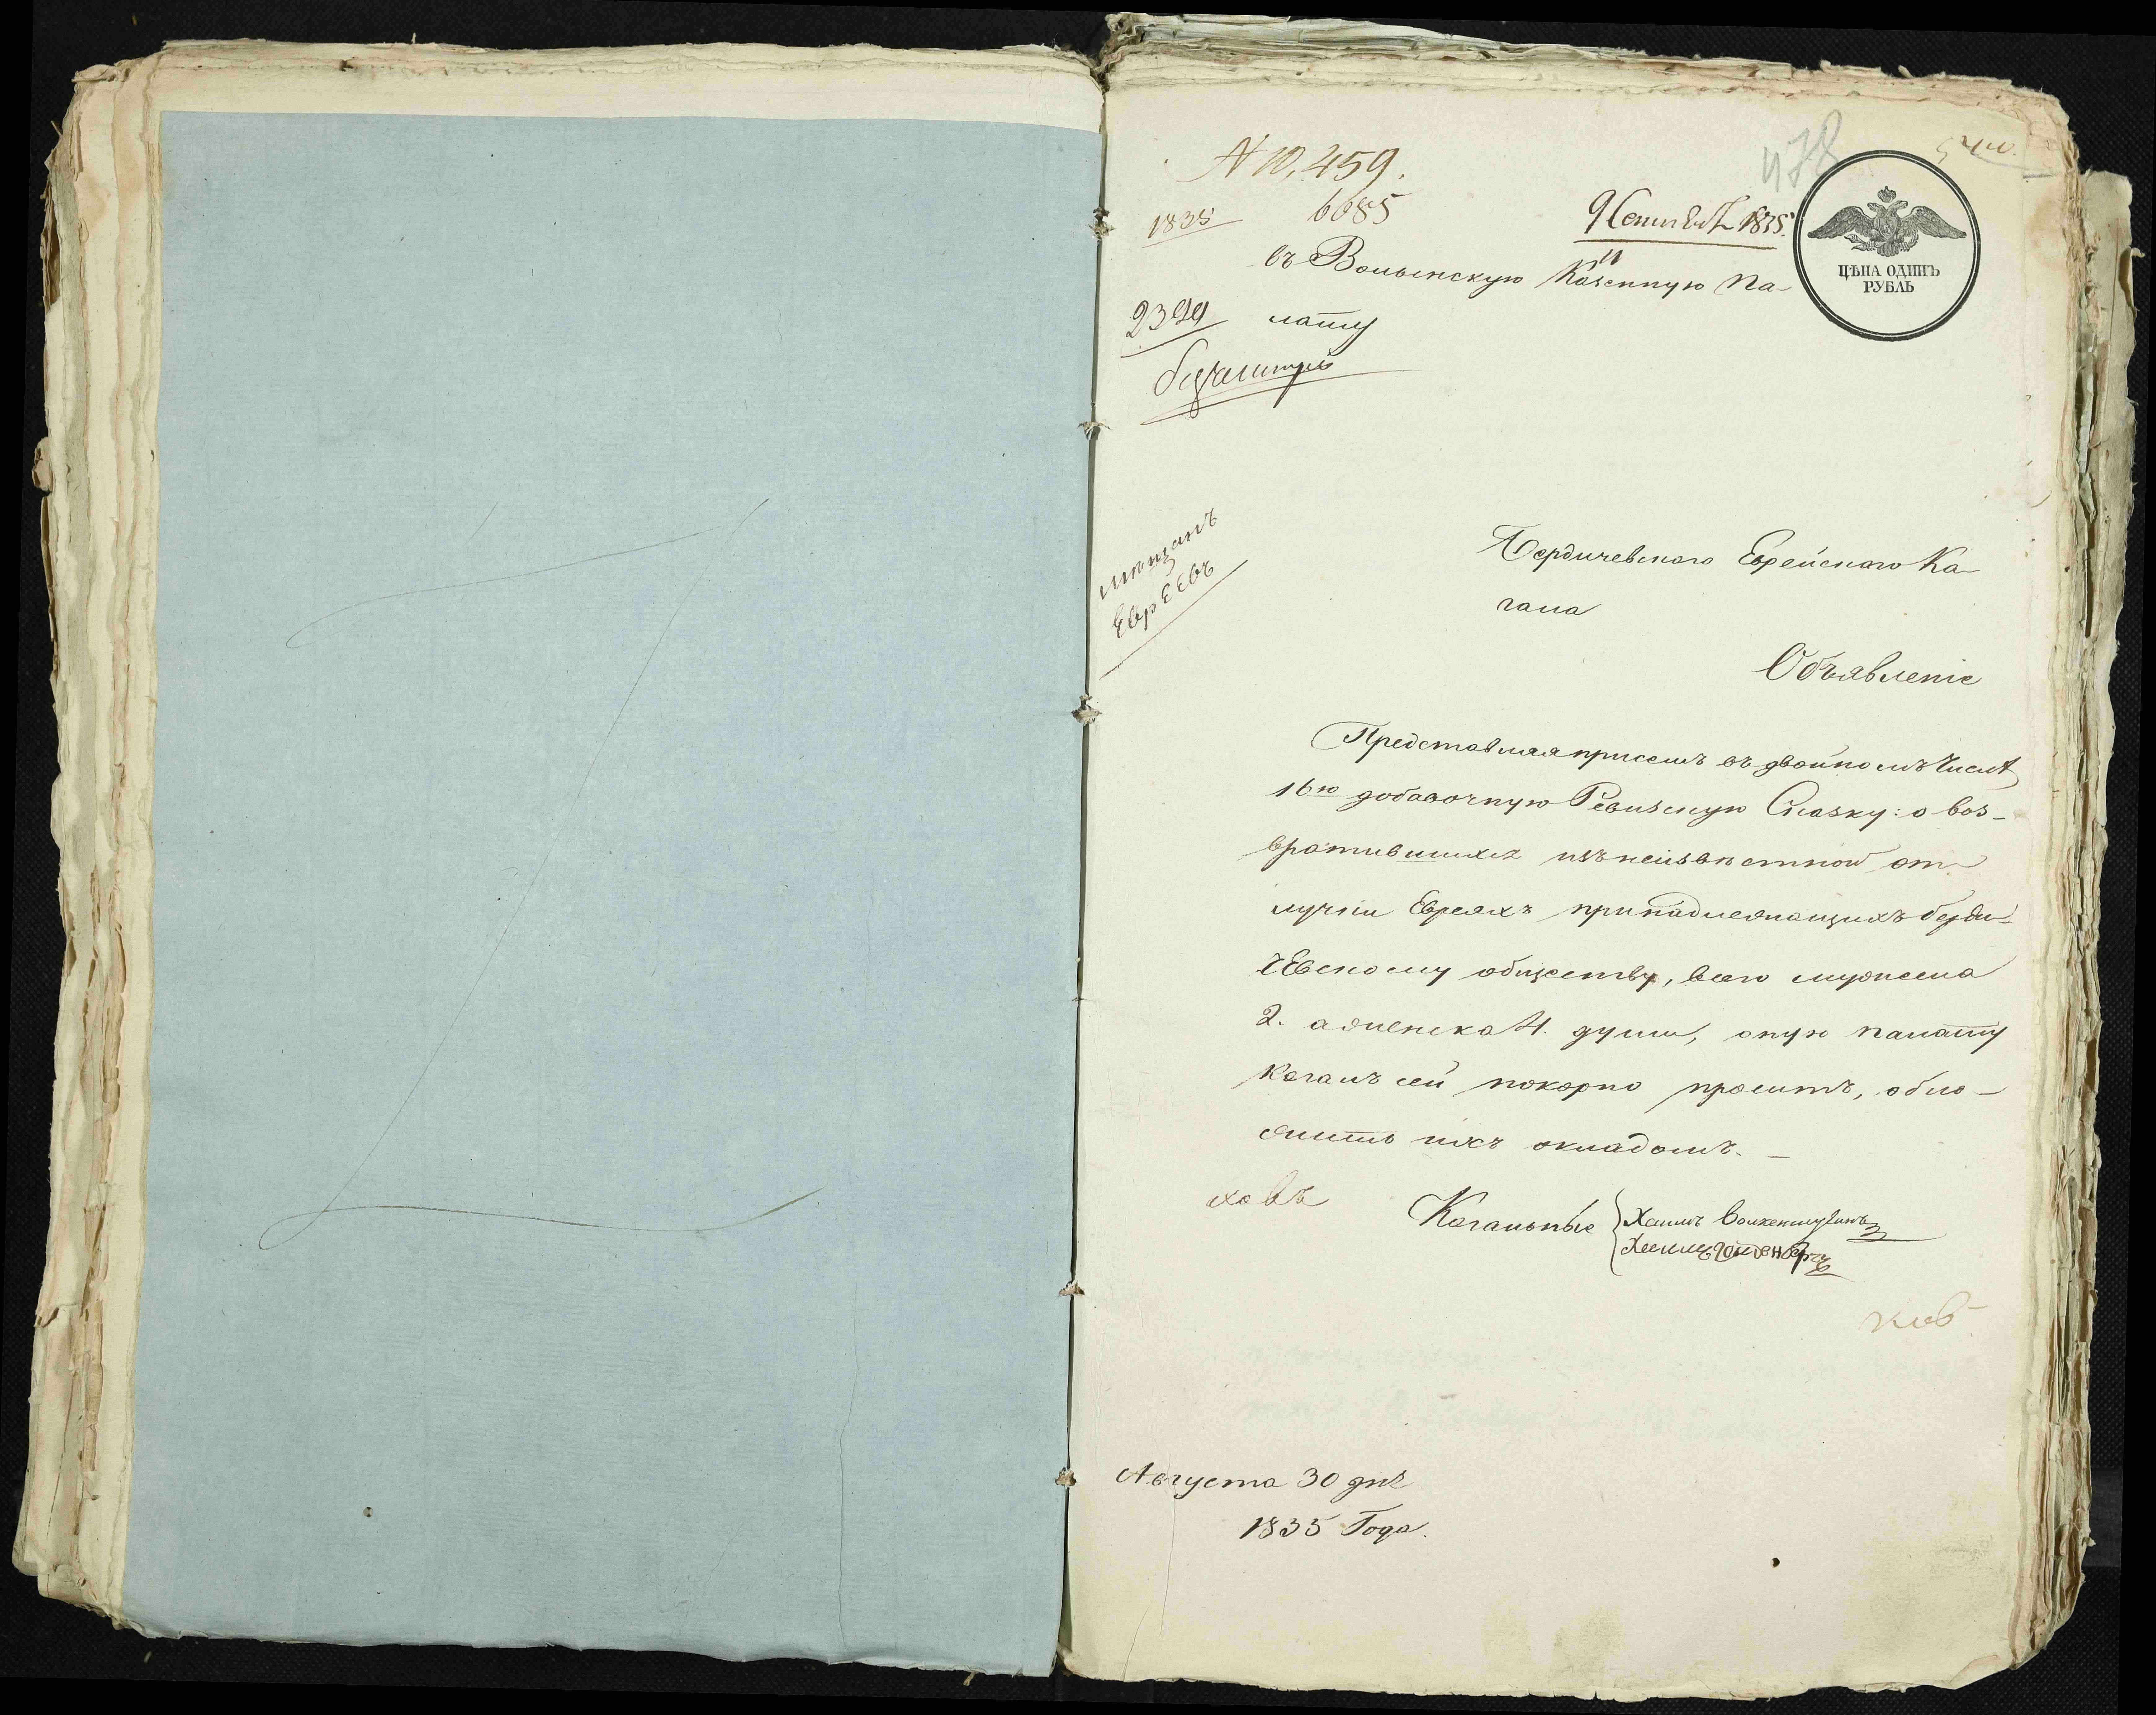 478
N 10,459.
1835 6685
9 Сентяб. 1835.
ЦѢНА ОДИНЪ
РУБЛЬ
въ Волынскую Казенную Па-
2394 лату
мѣщанъ
Евреевъ
Бердичевского Еврейского Ка-
гала
Объявленіе
Представляя присемъ въ двойномъ числѣ
16ю добавочную Ревизскую Сказку: о воз-
вратившихъ изъ неизвѣстной от-
лучки Евреяхъ принадлежащихъ берди-
чЕвскому обществу, всего мужеска
2. а женска 4. души, оную палату
Кагалъ сей покорно проситъ, обло-
жить ихъ окладомъ.
Кагальные Хаимъ
Августа 30 дня
1835 Года.